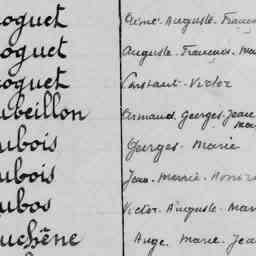 oquet Aimé-Auguste-Franço
oquet Auguste-François-Ma
oquet Constant-Victor
ubeillon Armand-Georges-Jean
Ma
ubois Georges-Marie
ubois Jean-Marie-Honoré
ubos Victor-Auguste-Mar
uchêne Ange-Marie-Jea